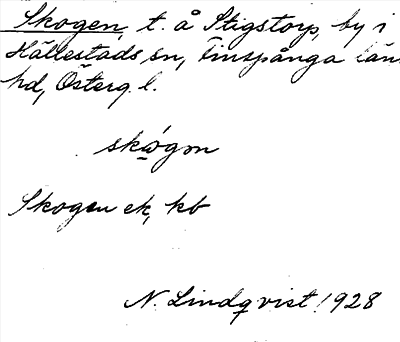 Skogen, t. å Stigstorp, by i
Hällestads sn, Finspånga läns
hd, Österg. l.
skógon
Skogen ek, kb
N. Lindqvist 1928